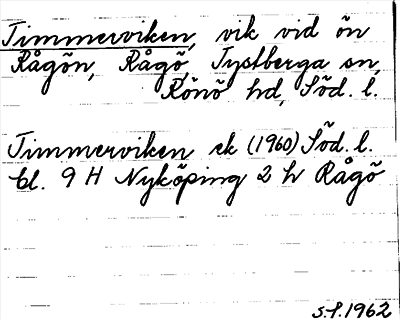 Timmerviken, vik vid ön
Rågön, Rågö, Tystberga sn,
Rönö hd, Söd. l.
Timmerviken ek (1960) Söd. l.
bl. 9 H Nyköping 2 h Rågö
S.F. 1962